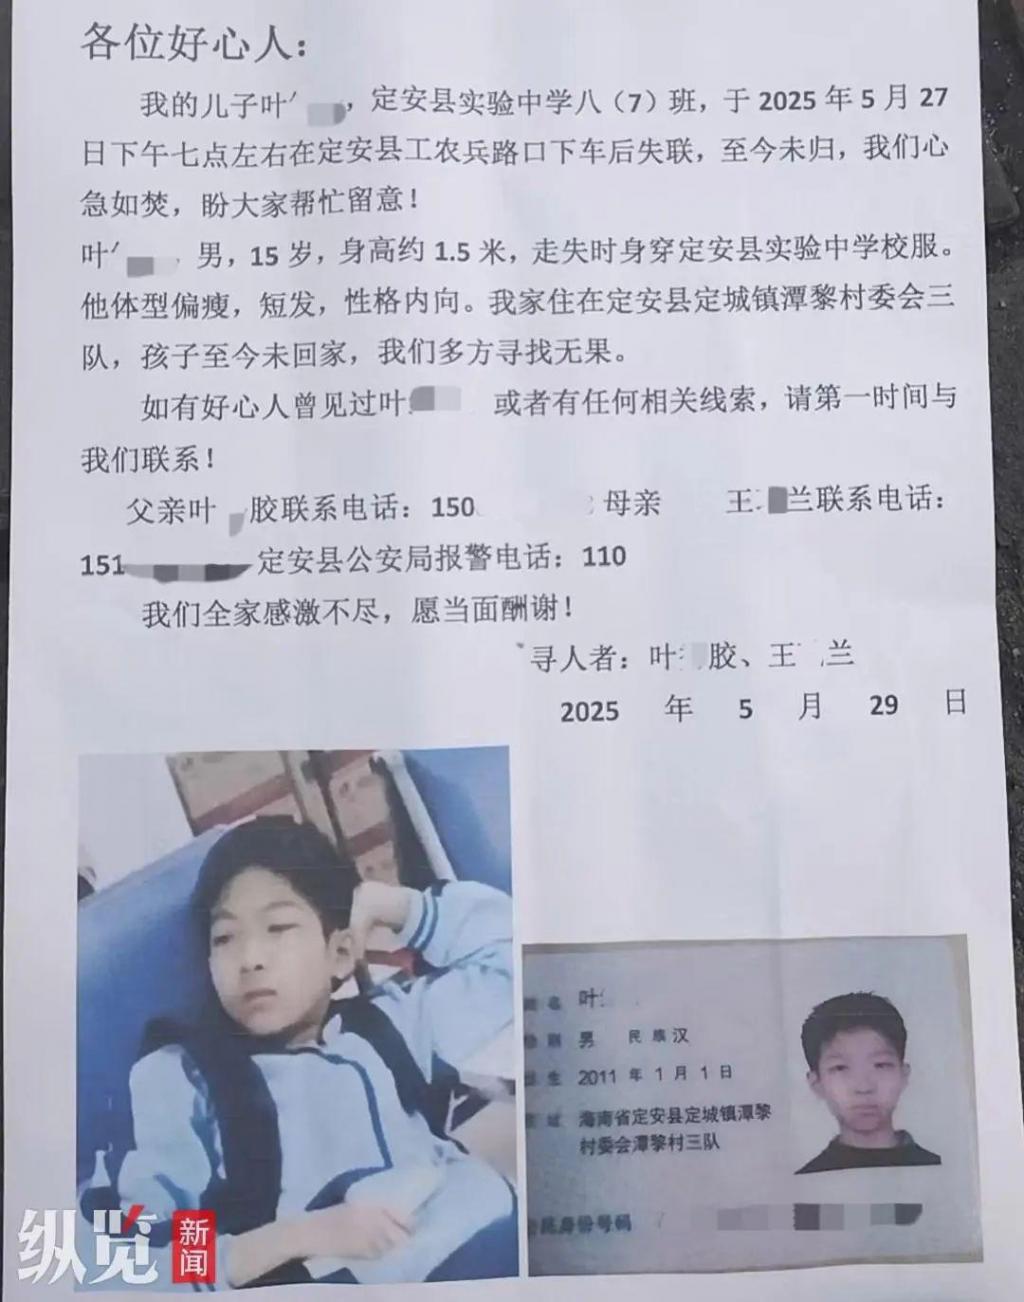 各位好心人：
我的儿子叶，定安县实验中学八（7）班，于 2025 年 5 月 27
日下午七点左右在定安县工农兵路口下车后失联，至今未归，我们心
急如焚，盼大家帮忙留意！
叶 男，15 岁，身高约 1.5 米，走失时身穿定安县实验中学校服。
他体型偏瘦，短发，性格内向。我家住在定安县定城镇潭黎村委会三
队，孩子至今未回家，我们多方寻找无果。
如有好心人曾见过叶 或者有任何相关线索，请第一时间与
我们联系！
父亲叶 胶联系电话：150 母亲 王 兰联系电话：
151 定安县公安局报警电话：110
我们全家感激不尽，愿当面酬谢！
寻人者：叶 胶、王 兰
2025 年 5 月 29 日
姓名 叶
性别 男 民族 汉
出生 2011 年 1 月 1 日
住址 海南省定安县定城镇潭黎
村委会潭黎村三队
公民身份号码
纵览 新闻